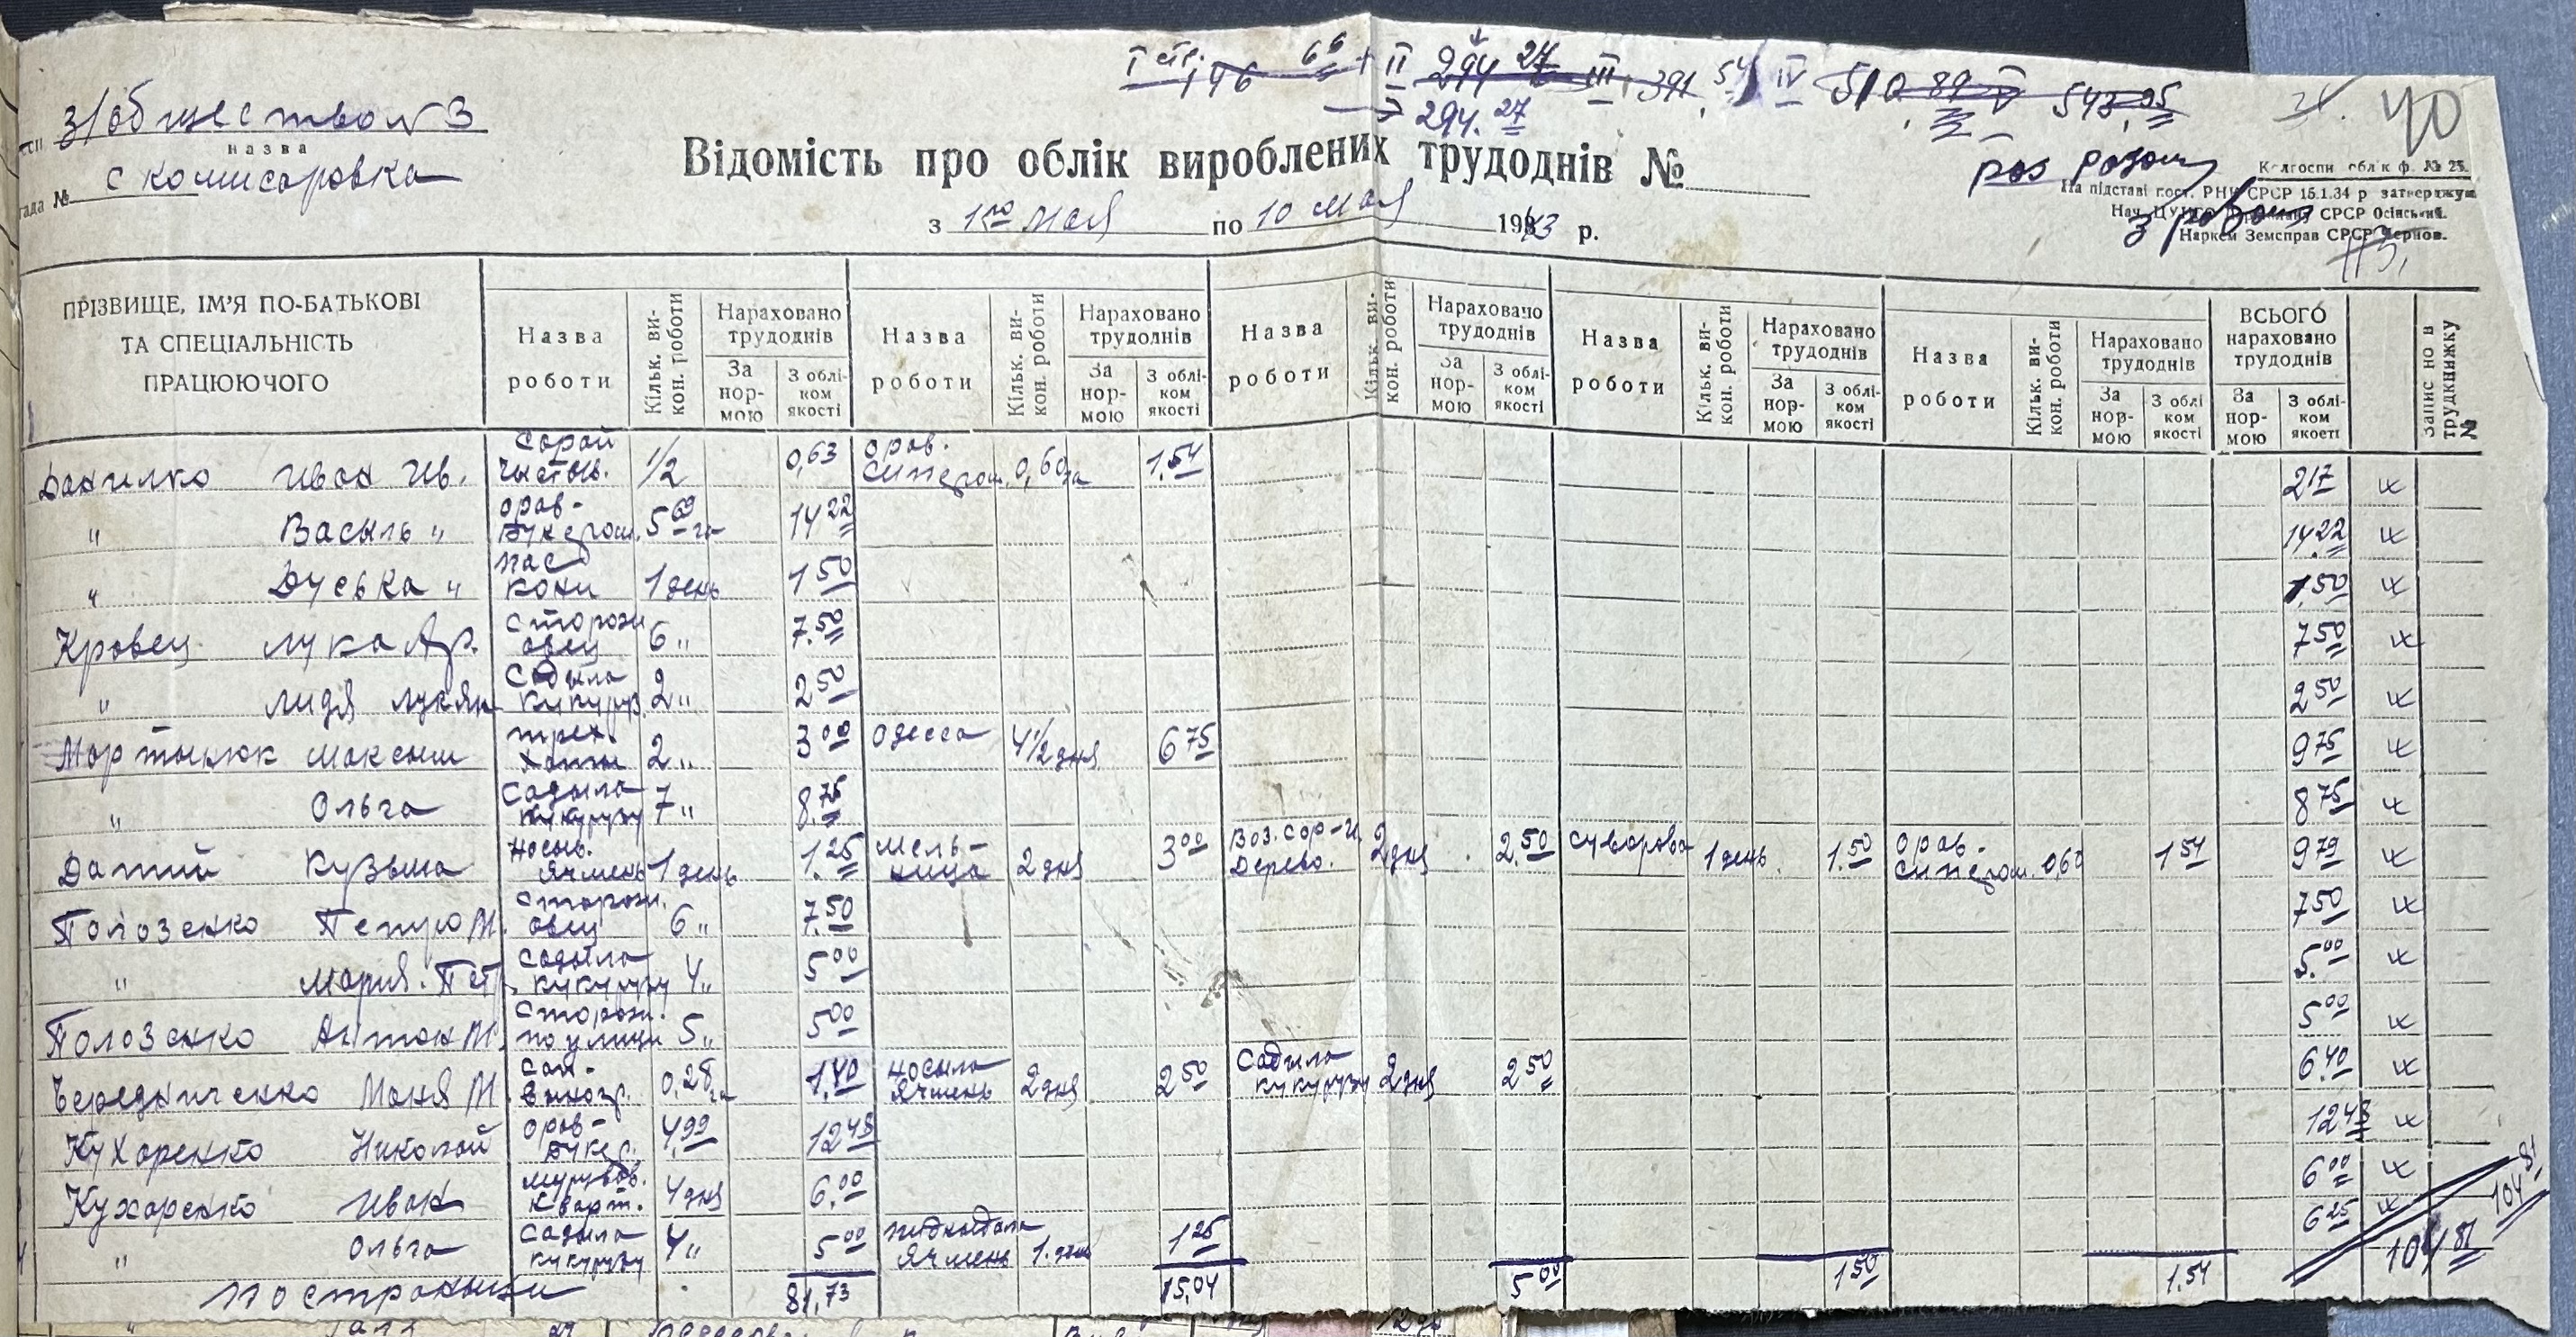 I стр. 196 66 + II 294 27 III 391 54 IV 510 89 V 543,05
→ 294.27
40
з/общество N 3
назва
с комисаровка
Відомість про облік вироблених трудоднів №
з 1го мая по 10 мая 1943 р.
Колгоспи облік ф. № 25.
На підставі пост. РНК СРСР 15.1.34 р затверджую
СРСР Осінський.
Нарком Земсправ СРСР Чернов.
ПРІЗВИЩЕ, ІМ'Я ПО-БАТЬКОВІ ТА СПЕЦІАЛЬНІСТЬ ПРАЦЮЮЧОГО
Назва роботи Кільк. викон. роботи Нараховано трудоднів За нормою З обліком якості
Назва роботи Кільк. викон. роботи Нараховано трудоднів За нормою З обліком якості
Назва роботи Кільк. викон. роботи Нараховано трудоднів За нормою З обліком якості
Назва роботи Кільк. викон. роботи Нараховано трудоднів За нормою З обліком якості
Назва роботи Кільк. викон. роботи Нараховано трудоднів За нормою З обліком якості
ВСЬОГО нараховано трудоднів За нормою З обліком якості
Записано в трудкнижку №
Данилко Иван Ив. сарай чыстыв. 1/2 0,63 орав. сипером 0,60 га 1.54 2 17
" Васыль " орав- Букером. 5 69 га 14 22 14 22
" Дуська " пас кони 1 день 1 50 1,50
Кровец Лука Ар. сторож овец 6 " 7.50 7 50
" Лидя Лукян садыла кукуруз. 2 " 2 50 2 50
Мартынюк Максым трех. хаты 2 " 3 00 Одесса 4 1/2 дня 6 75 9 75
" Ольга садыла кукурузу 7 " 8.75 8 75
Датий Кузьма носыв. ячмень 1 день 1.25 мельница 2 дня 3 00 Воз. сор-и Дерево. 2 дня 2.50 Суворова 1 день 1.50 орав- сипером. 0,60 1 54 9 79
Полозенко Петро М. сторож. овец 6 " 7.50 7 50
" Мария. Пет. садыла кукурузу 4 " 5 00 5.00
Полозенко Антон М. сторож. по улици 5 " 5 00 5 00
Чередниченко Маня М. сап- виногр. 0,28 га 1.40 носыла ячмень 2 дня 2 50 садыла кукурузу 2 дня 2 50 6.40
Кухаренко Николай орав- Букер. 4,99 12 48 12 48
Кухаренко Иван мурував. кварт. 4 дня 6.00 6 00
" Ольга садыла кукурузу 4 " 5 00 ячмень 1. день 1 25 6 25
По страныци 81,73 15,04 5 00 1 50 1.54 104 81
104 81